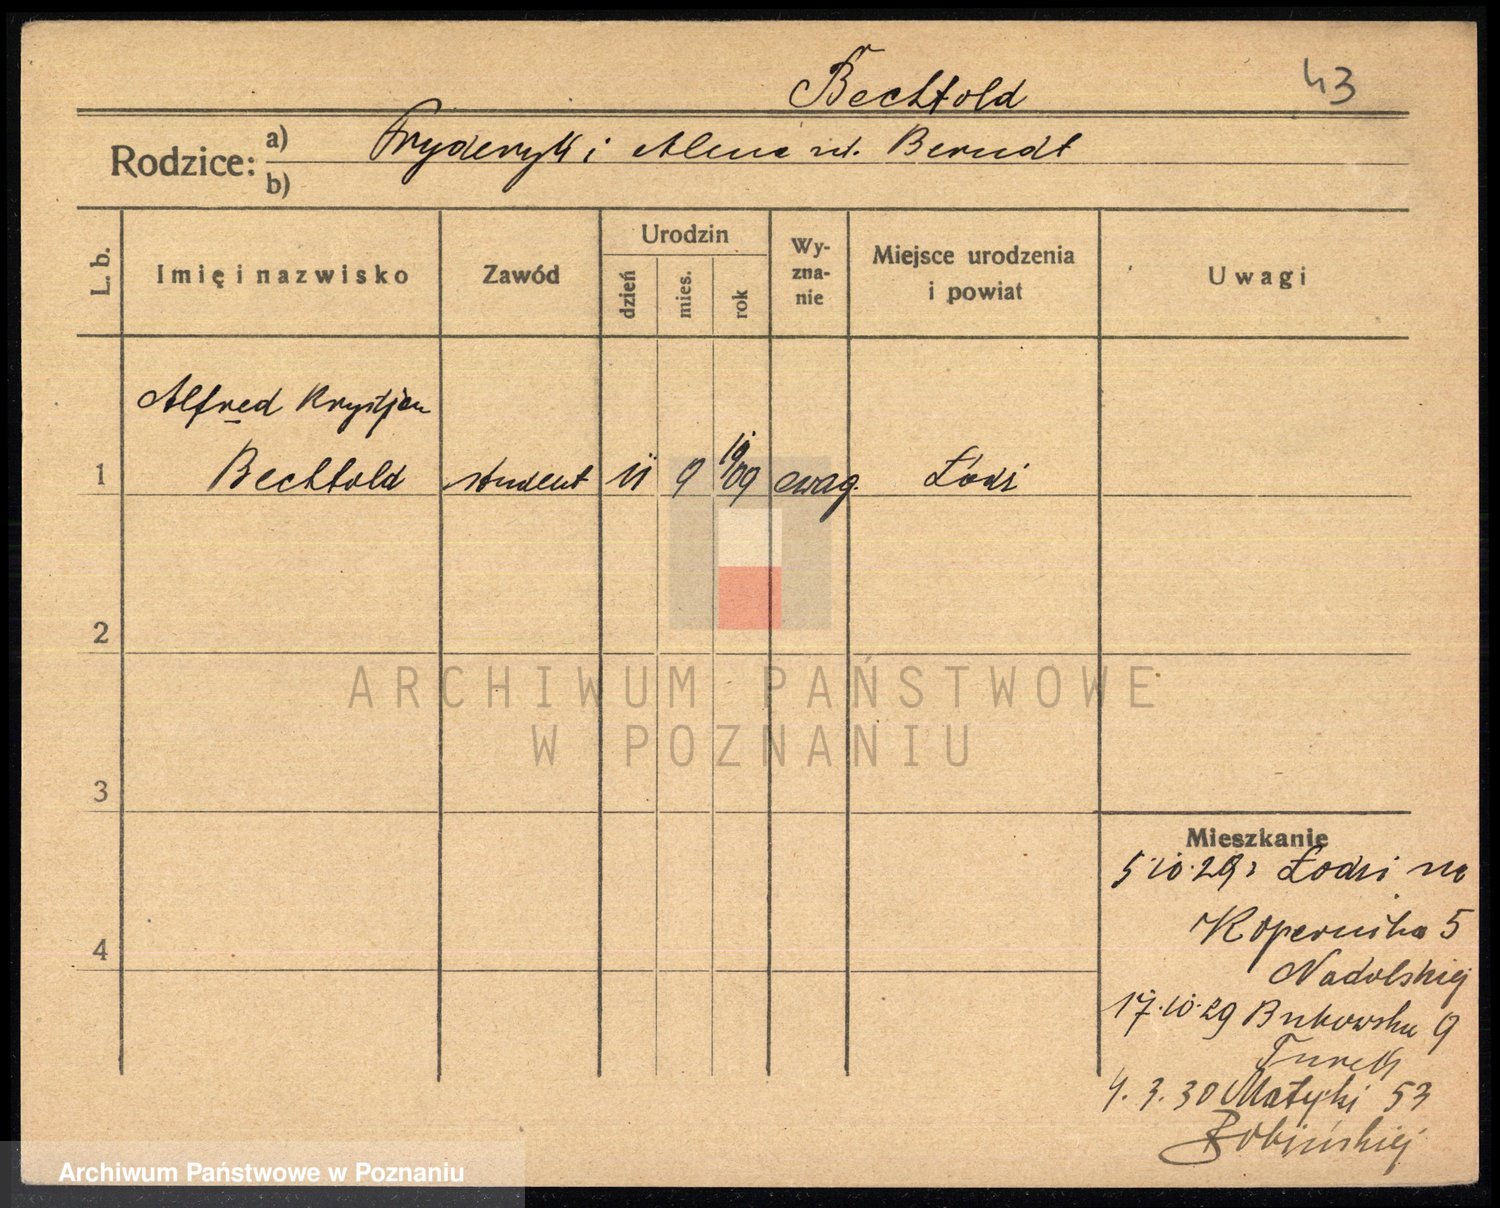 Bechtold
43
Rodzice: a) Fryderyk i Alma ur. Berndt
b)
L. b.
Imię i nazwisko
Zawód
Urodzin
dzień
mies.
rok
Wy-
zna-
nie
Miejsce urodzenia
i powiat
Uwagi
Alfred Krystjan
1 Bechtold student 11 9 1909 ewag. Łodzi
2
3
4
ARCHIWUM PAŃSTWOWE
W POZNANIU
Mieszkanie
5.10.29 z Łodzi na
Kopernika 5
Nadolskiej
17.10.29 Bukowska 9
Turek
4.3.30 Matyki 53
Robińskiej
Archiwum Państwowe w Poznaniu